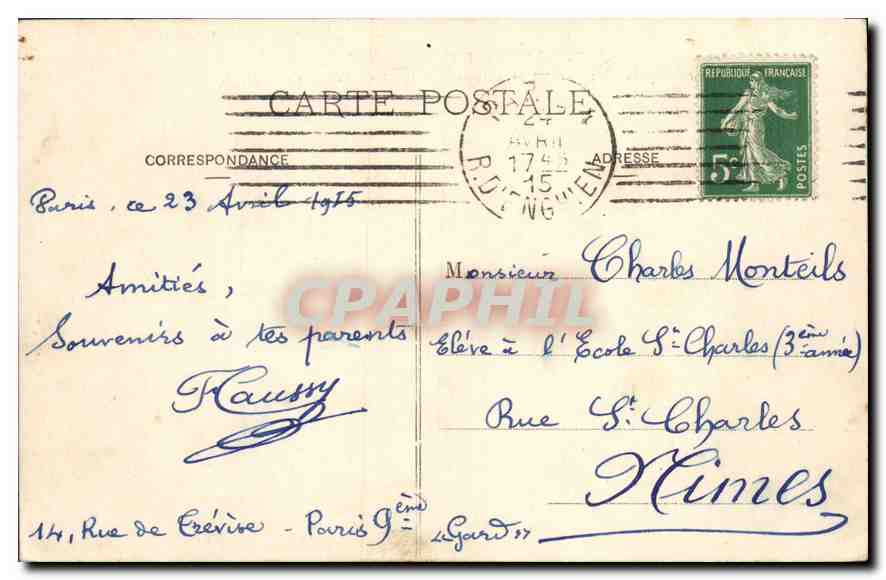 CARTE POSTALE
CORRESPONDANCE
ADRESSE
24
AVRIL
17 45
15
R. D'ENGHIEN
REPUBLIQUE FRANÇAISE
5c
POSTES
Paris, ce 23 Avril 1915
Amitiés,
Souvenirs à tes parents
14, Rue de Trévise - Paris 9ème
Monsieur Charles Monteils
Elève à l'Ecole St-Charles (3ème année)
Rue St. Charles
Nimes
Gard
CPAPHIL